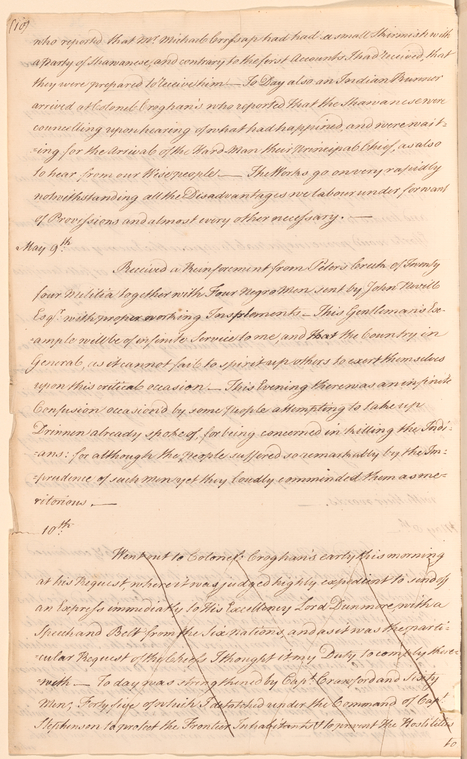 (10)
who reported that Mr. Michael Cressap had had a small Skirmish with
a Party of Shawanese, and contrary to the first Accounts I had received, that
they were prepared to receive him — To Day also an Indian Runner
arrived at Colonel Croghan's who reported that the Shawanese were
councilling upon hearing of what had happined, and were wait-
ing for the Arrival of the Hard Man their Principal Chief, as also
to hear from our Wise people — The Works go on very rapidly
notwithstanding all the Disadvantages we labour under for want
of Provissions and almost every other necessary. —
May 9th
Received a Reinforcement from Peters Creek of Twenty
four Militia together with Four Negro Men sent by John Nevill
Esqr. with proper working Insploments — This Gentleman's Ex-
ample will be of infinite Service to me, and that the Country in
General, as it cannot fail to spirit up others to exert themselves
upon this critical occasion — This Evening there was an infinite
Confusion occasion'd by some People attempting to take up
Drinnen already spoke of, for being concerned in killing the Indi-
ans: for although the People suffered so remarkably by the Im-
prudence of such men yet they loudly commended them as me-
ritorious —
10th
Went out to Colonel Croghan's early this morning
at his Request where it was judged highly expedient to send off
an Express immediately to His Excellency Lord Dunmore with a
Speech and Belt from the Six Nations, and as it was the parti-
cular Request of the Cheifs I thought it my Duty to comply there-
with — To day was strengthened by Capt. Crawford and Sixty
Men, Forty five of which I detatched under the Command of Capt.
Stephenson to protect the Frontier Inhabitants & to prevent the Hostilities
to